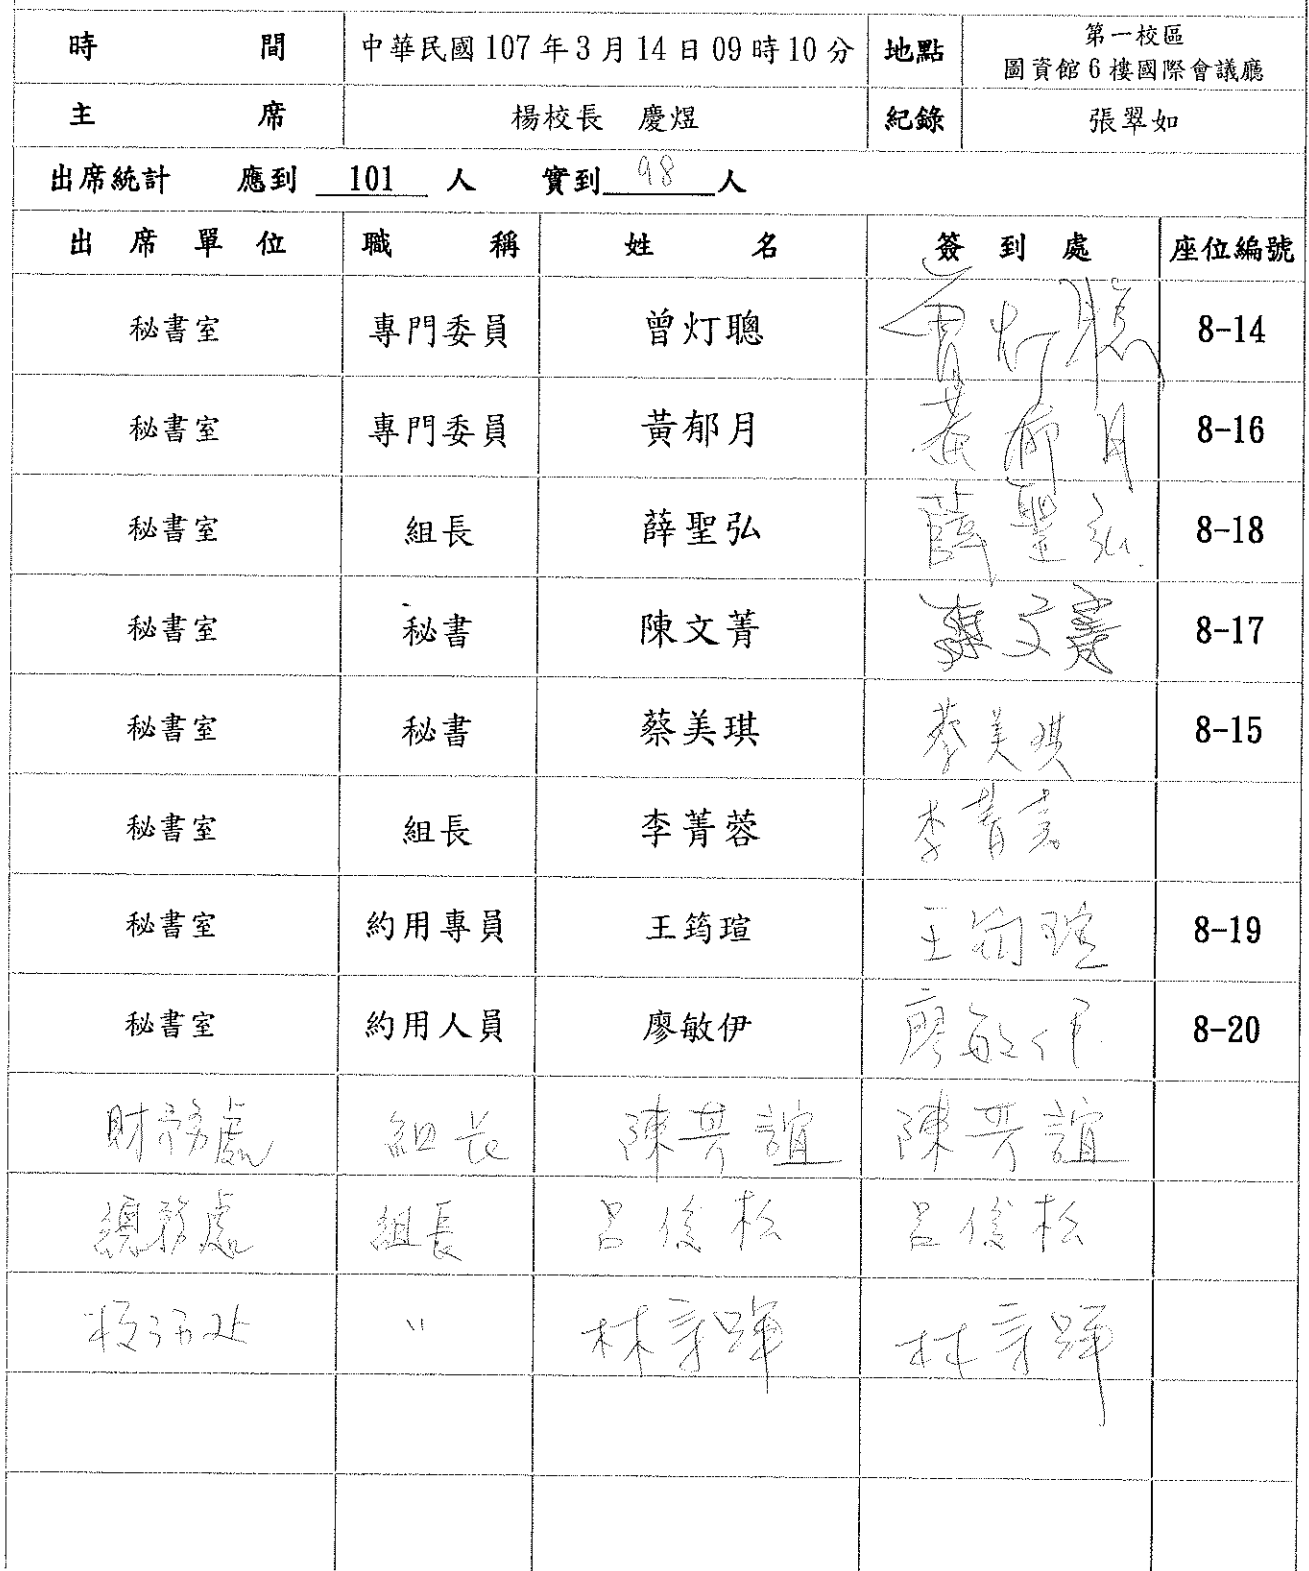 時 間 中華民國 107 年 3 月 14 日 09 時 10 分 地點 第一校區
圖資館 6 樓國際會議廳
主 席 楊校長 慶煜 紀錄 張翠如
出席統計 應到 101 人 實到 98 人
出 席 單 位 職 稱 姓 名 簽 到 處 座位編號
秘書室 專門委員 曾灯聰 曾灯聰 8-14
秘書室 專門委員 黃郁月 黃郁月 8-16
秘書室 組長 薛聖弘 薛聖弘 8-18
秘書室 秘書 陳文菁 陳文菁 8-17
秘書室 秘書 蔡美琪 蔡美琪 8-15
秘書室 組長 李菁蓉 李菁蓉
秘書室 約用專員 王筠瑄 王筠瑄 8-19
秘書室 約用人員 廖敏伊 廖敏伊 8-20
財務處 組長 陳芳誼 陳芳誼
總務處 組長 呂俊松 呂俊松
〃 林